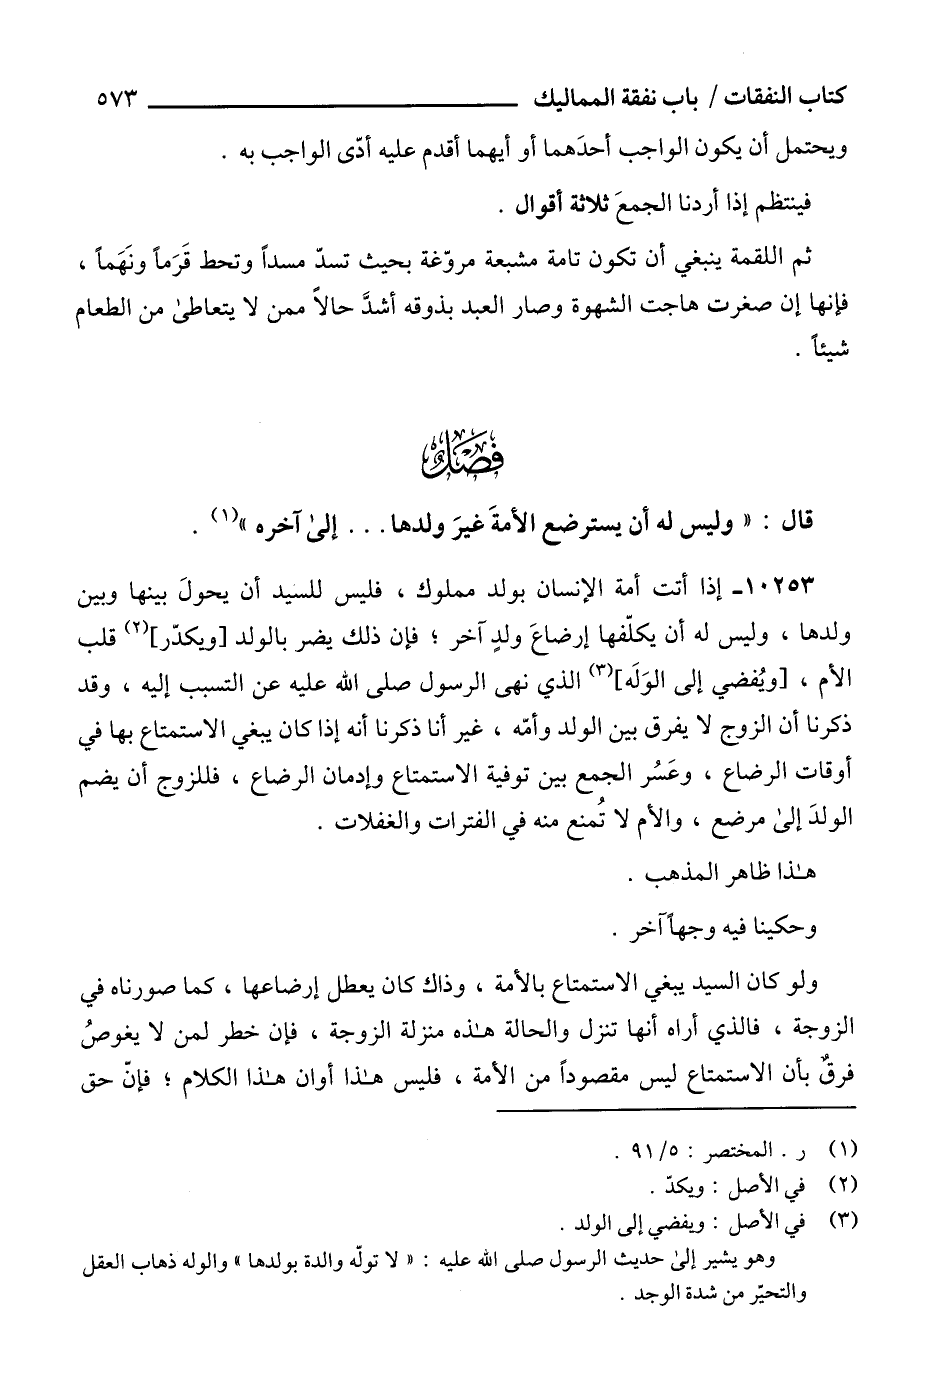 كتاب النفقات / باب نفقة المماليك ٥٧٣
ويحتمل أن يكون الواجب أحدَهما أو أيهما أقدم عليه أدّى الواجب به .
فينتظم إذا أردنا الجمعَ ثلاثة أقوال .
ثم اللقمة ينبغي أن تكون تامة مشبعة مروّغة بحيث تسدّ مسداً وتحط قَرَماً ونَهَماً ،
فإنها إن صغرت هاجت الشهوة وصار العبد بذوقه أشدَّ حالاً ممن لا يتعاطىٰ من الطعام
شيئاً .
فصل
قال : « وليس له أن يسترضع الأمةَ غيرَ ولدها . . . إلىٰ آخره »(١) .
١٠٢٥٣ـ إذا أتت أمة الإنسان بولد مملوك ، فليس للسيد أن يحولَ بينها وبين
ولدها ، وليس له أن يكلّفها إرضاعَ ولدٍ آخر ؛ فإن ذلك يضر بالولد [ويكدّر](٢) قلب
الأم ، [ويُفضي إلى الوَلَه](٣) الذي نهى الرسول صلى الله عليه عن التسبب إليه ، وقد
ذكرنا أن الزوج لا يفرق بين الولد وأمّه ، غير أنا ذكرنا أنه إذا كان يبغي الاستمتاع بها في
أوقات الرضاع ، وعَسُر الجمع بين توفية الاستمتاع وإدمان الرضاع ، فللزوج أن يضم
الولدَ إلىٰ مرضع ، والأم لا تُمنع منه في الفترات والغفلات .
هـٰذا ظاهر المذهب .
وحكينا فيه وجهاً آخر .
ولو كان السيد يبغي الاستمتاع بالأمة ، وذاك كان يعطل إرضاعها ، كما صورناه في
الزوجة ، فالذي أراه أنها تنزل والحالة هـٰذه منزلة الزوجة ، فإن خطر لمن لا يغوصُ
فرقٌ بأن الاستمتاع ليس مقصوداً من الأمة ، فليس هـٰذا أوان هـٰذا الكلام ؛ فإنّ حق
(١) ر . المختصر : ٥/ ٩١ .
(٢) في الأصل : ويكدّ .
(٣) في الأصل : ويفضي إلى الولد .
وهو يشير إلىٰ حديث الرسول صلى الله عليه : « لا تولّه والدة بولدها » والوله ذهاب العقل
والتحيّر من شدة الوجد .